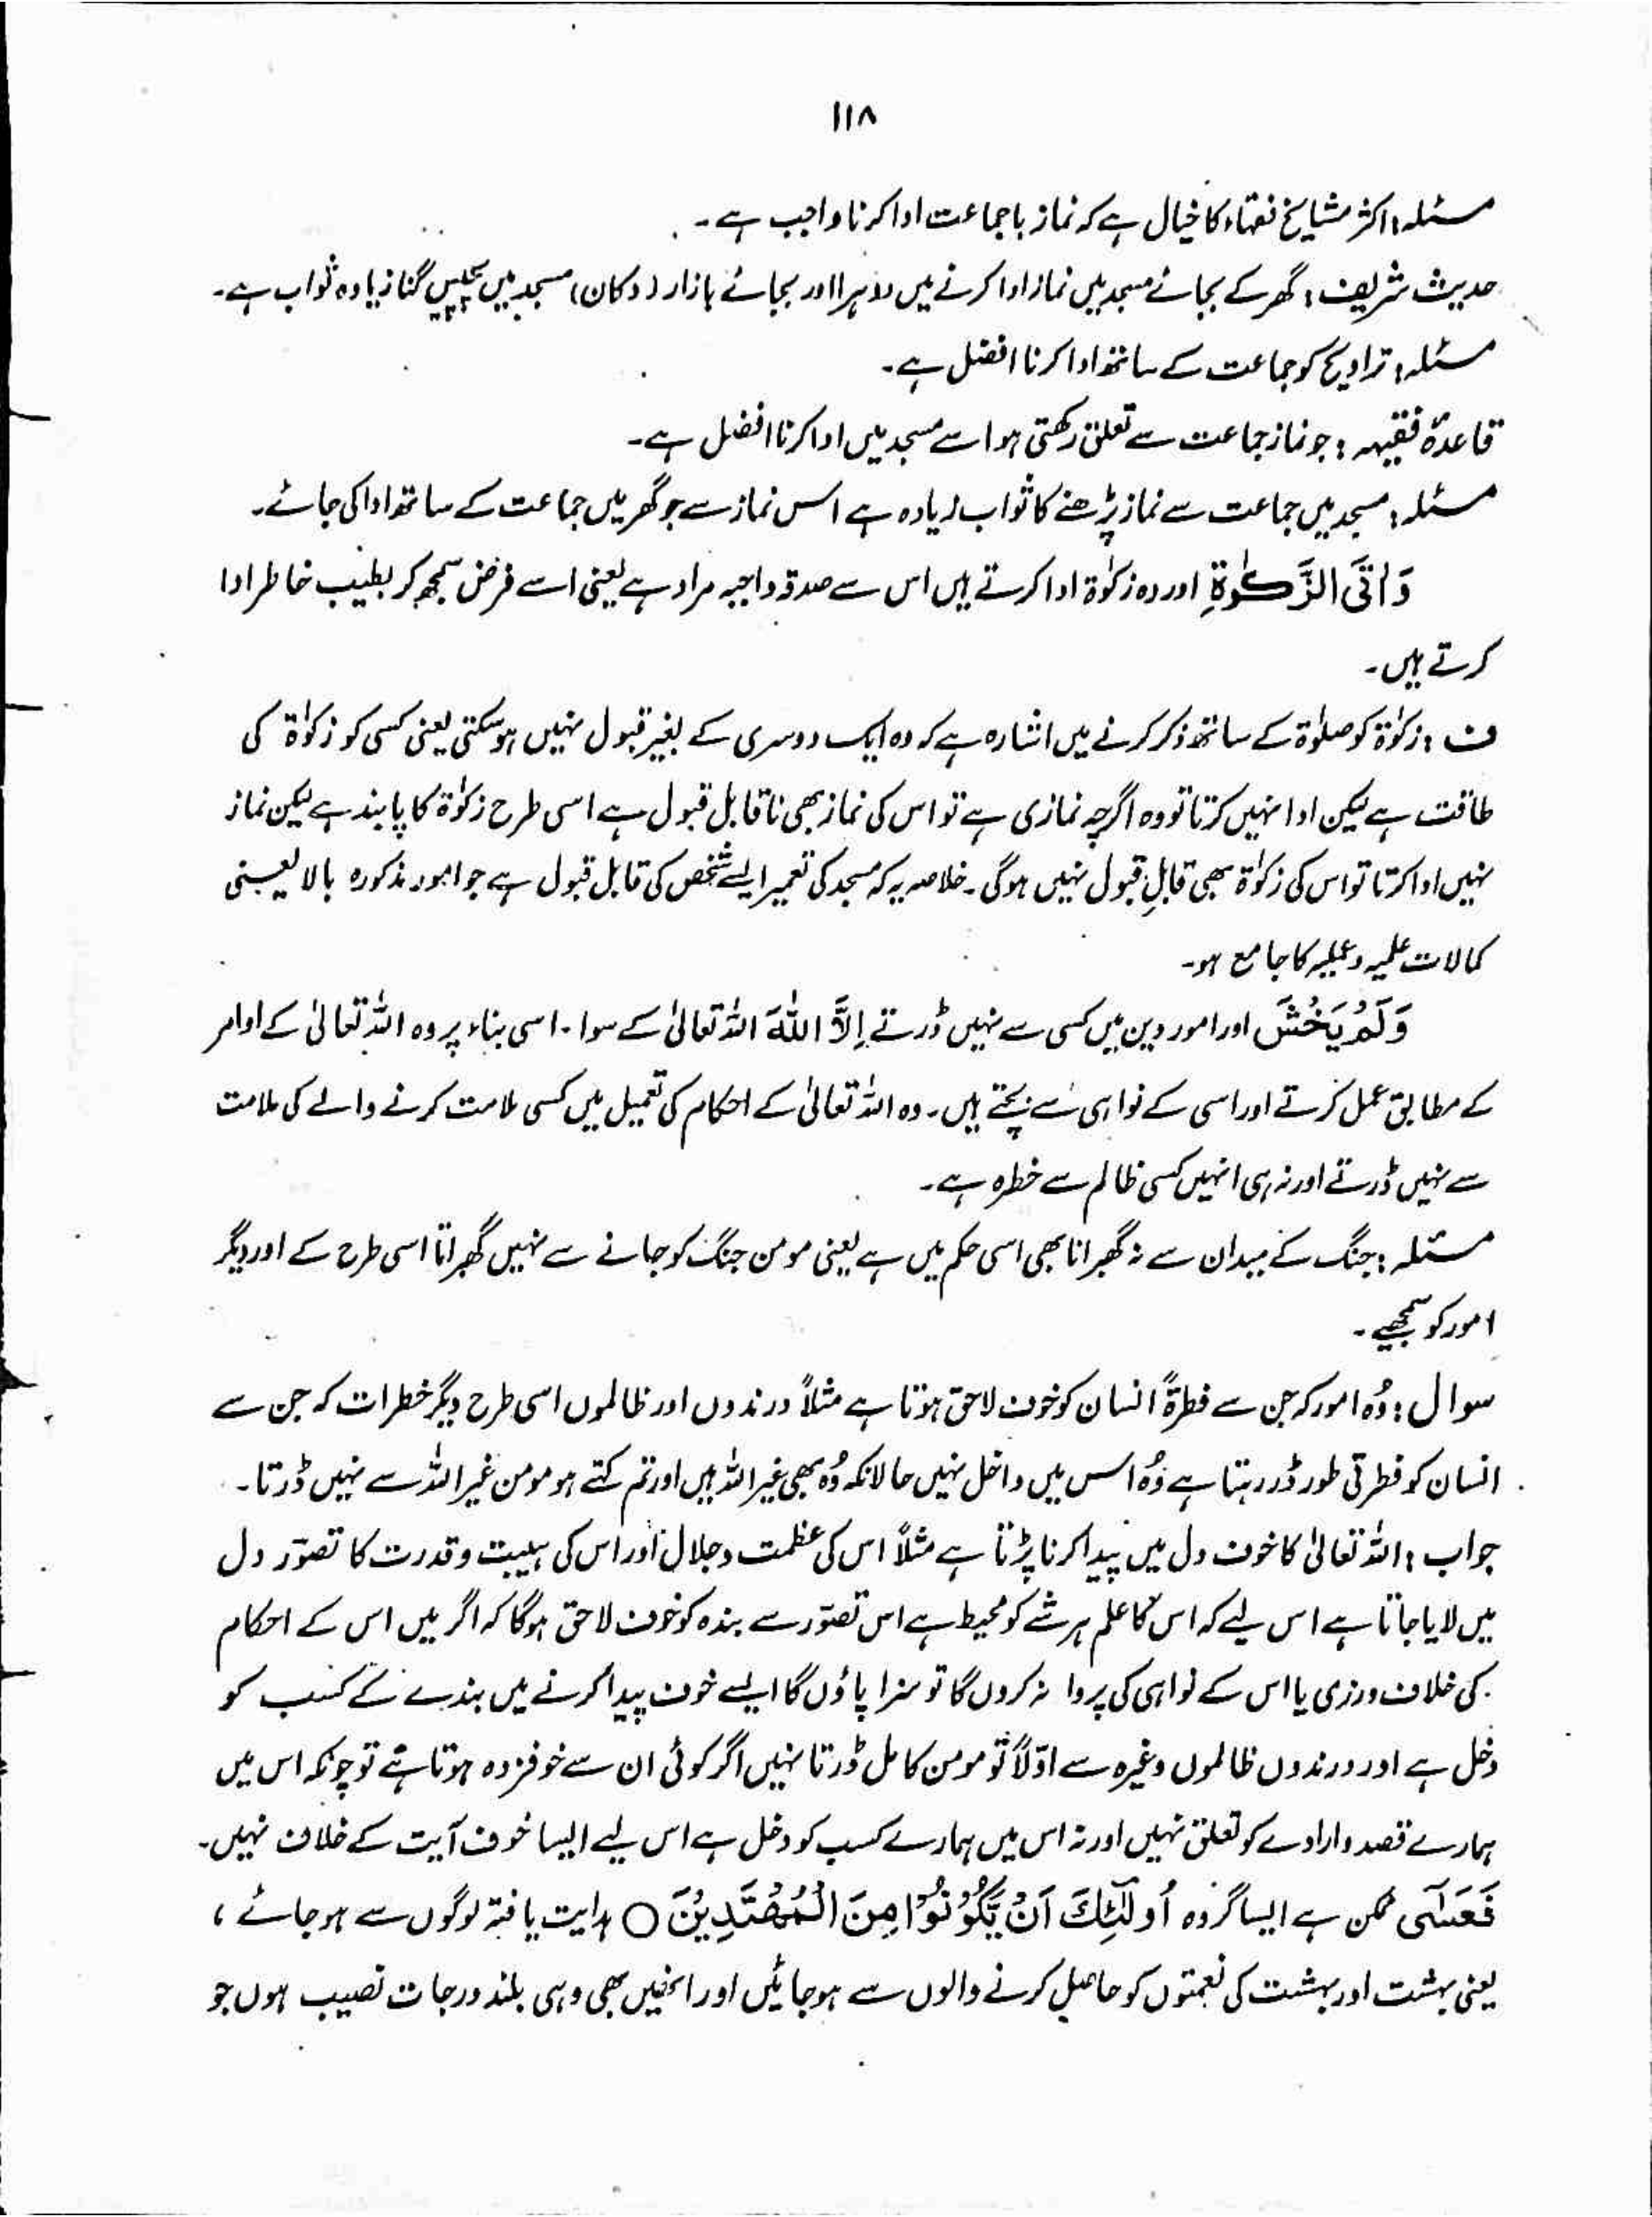 ۱۱۸
مسئلہ : اکثر مشایخ فقہاء کا خیال ہے کہ نماز باجماعت ادا کرنا واجب ہے ۔
حدیث شریف : گھر کے بجائے مسجد میں نماز ادا کرنے میں دوہرا اور بجائے بازار (دکان) مسجد میں پچیس گنا زیادہ ثواب ہے ۔
مسئلہ : تراویح کو جماعت کے ساتھ ادا کرنا افضل ہے ۔
قاعدۂ فقیہہ : جو نماز جماعت سے تعلق رکھتی ہو اسے مسجد میں ادا کرنا افضل ہے ۔
مسئلہ : مسجد میں جماعت سے نماز پڑھنے کا ثواب زیادہ ہے اس نماز سے جو گھر میں جماعت کے ساتھ ادا کی جائے ۔
وَاٰتَى الزَّكٰوةَ اور وہ زکوٰۃ ادا کرتے ہیں اس سے صدقہ واجبہ مراد ہے یعنی اسے فرض سمجھ کر بطیب خاطر ادا
کرتے ہیں ۔
ف : زکوٰۃ کو صلوٰۃ کے ساتھ ذکر کرنے میں اشارہ ہے کہ وہ ایک دوسری کے بغیر قبول نہیں ہو سکتی یعنی کسی کو زکوٰۃ کی
طاقت ہے لیکن ادا نہیں کرتا تو وہ اگرچہ نمازی ہے تو اس کی نماز بھی ناقابل قبول ہے اسی طرح زکوٰۃ کا پابند ہے لیکن نماز
نہیں ادا کرتا تو اس کی زکوٰۃ بھی قابلِ قبول نہیں ہوگی ۔ خلاصہ یہ کہ مسجد کی تعمیر ایسے شخص کی قابل قبول ہے جو امور مذکورہ بالا یعنی
کمالات علمیہ و عملیہ کا جامع ہو ۔
وَلَمْ يَخْشَ اور امور دین میں کسی سے نہیں ڈرتے اِلَّا اللّٰهَ اللہ تعالیٰ کے سوا ۔ اسی بناء پر وہ اللہ تعالیٰ کے اوامر
کے مطابق عمل کرتے اور اسی کے نواہی سے بچتے ہیں ۔ وہ اللہ تعالیٰ کے احکام کی تعمیل میں کسی ملامت کرنے والے کی ملامت
سے نہیں ڈرتے اور نہ ہی انہیں کسی ظالم سے خطرہ ہے ۔
مسئلہ : جنگ کے میدان سے نہ گھبرانا بھی اسی حکم میں ہے یعنی مومن جنگ کو جانے سے نہیں گھبراتا اسی طرح کے اور دیگر
امور کو سمجھیے ۔
سوال : وُہ امور کہ جن سے فطرۃً انسان کو خوف لاحق ہوتا ہے مثلاً درندوں اور ظالموں اسی طرح دیگر خطرات کہ جن سے
انسان کو فطرتی طور ڈر رہتا ہے وُہ اس میں داخل نہیں حالانکہ وُہ بھی غیر اللہ ہیں اور تم کہتے ہو مومن غیر اللہ سے نہیں ڈرتا ۔
جواب : اللہ تعالیٰ کا خوف دل میں پیدا کرنا پڑتا ہے مثلاً اس کی عظمت و جلال اور اس کی ہیبت و قدرت کا تصوّر دل
میں لایا جاتا ہے اس لیے کہ اس کا علم ہر شے کو محیط ہے اس تصوّر سے بندہ کو خوف لاحق ہوگا کہ اگر میں اس کے احکام
کی خلاف ورزی یا اس کے نواہی کی پروا نہ کروں گا تو سزا پاؤں گا ایسے خوف پیدا کرنے میں بندے کے کسب کو
دخل ہے اور درندوں ظالموں وغیرہ سے اوّلاً تو مومن کامل ڈرتا نہیں اگر کوئی ان سے خوفزدہ ہوتا ہے تو چونکہ اس میں
ہمارے قصد و ارادے کو تعلق نہیں اور نہ اس میں ہمارے کسب کو دخل ہے اس لیے ایسا خوف آیت کے خلاف نہیں ۔
فَعَسٰٓى ممکن ہے ایسا گروہ اُولٰٓئِكَ اَنْ يَّكُوْنُوْا مِنَ الْمُهْتَدِيْنَ ○ ہدایت یافتہ لوگوں سے ہو جائے ،
یعنی بہشت اور بہشت کی نعمتوں کو حاصل کرنے والوں سے ہو جائیں اور انھیں بھی وہی بلند درجات نصیب ہوں جو